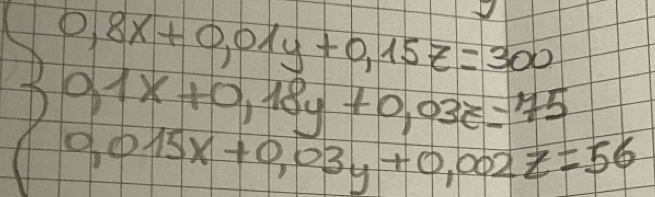 0,8x+0,01y+0,15z=300
0,1x+0,18y+0,03z=75
0,015x+0,03y+0,002z=56